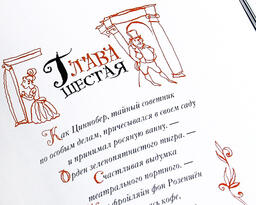 Глава
шестая
Как Циннобер, тайный советник
по особым делам, причесывался в своем саду
и принимал росяную ванну. —
Орден зеленопятнистого тигра. —
Счастливая выдумка
театрального портного. —
фройляйн фон Розеншён
кофе.